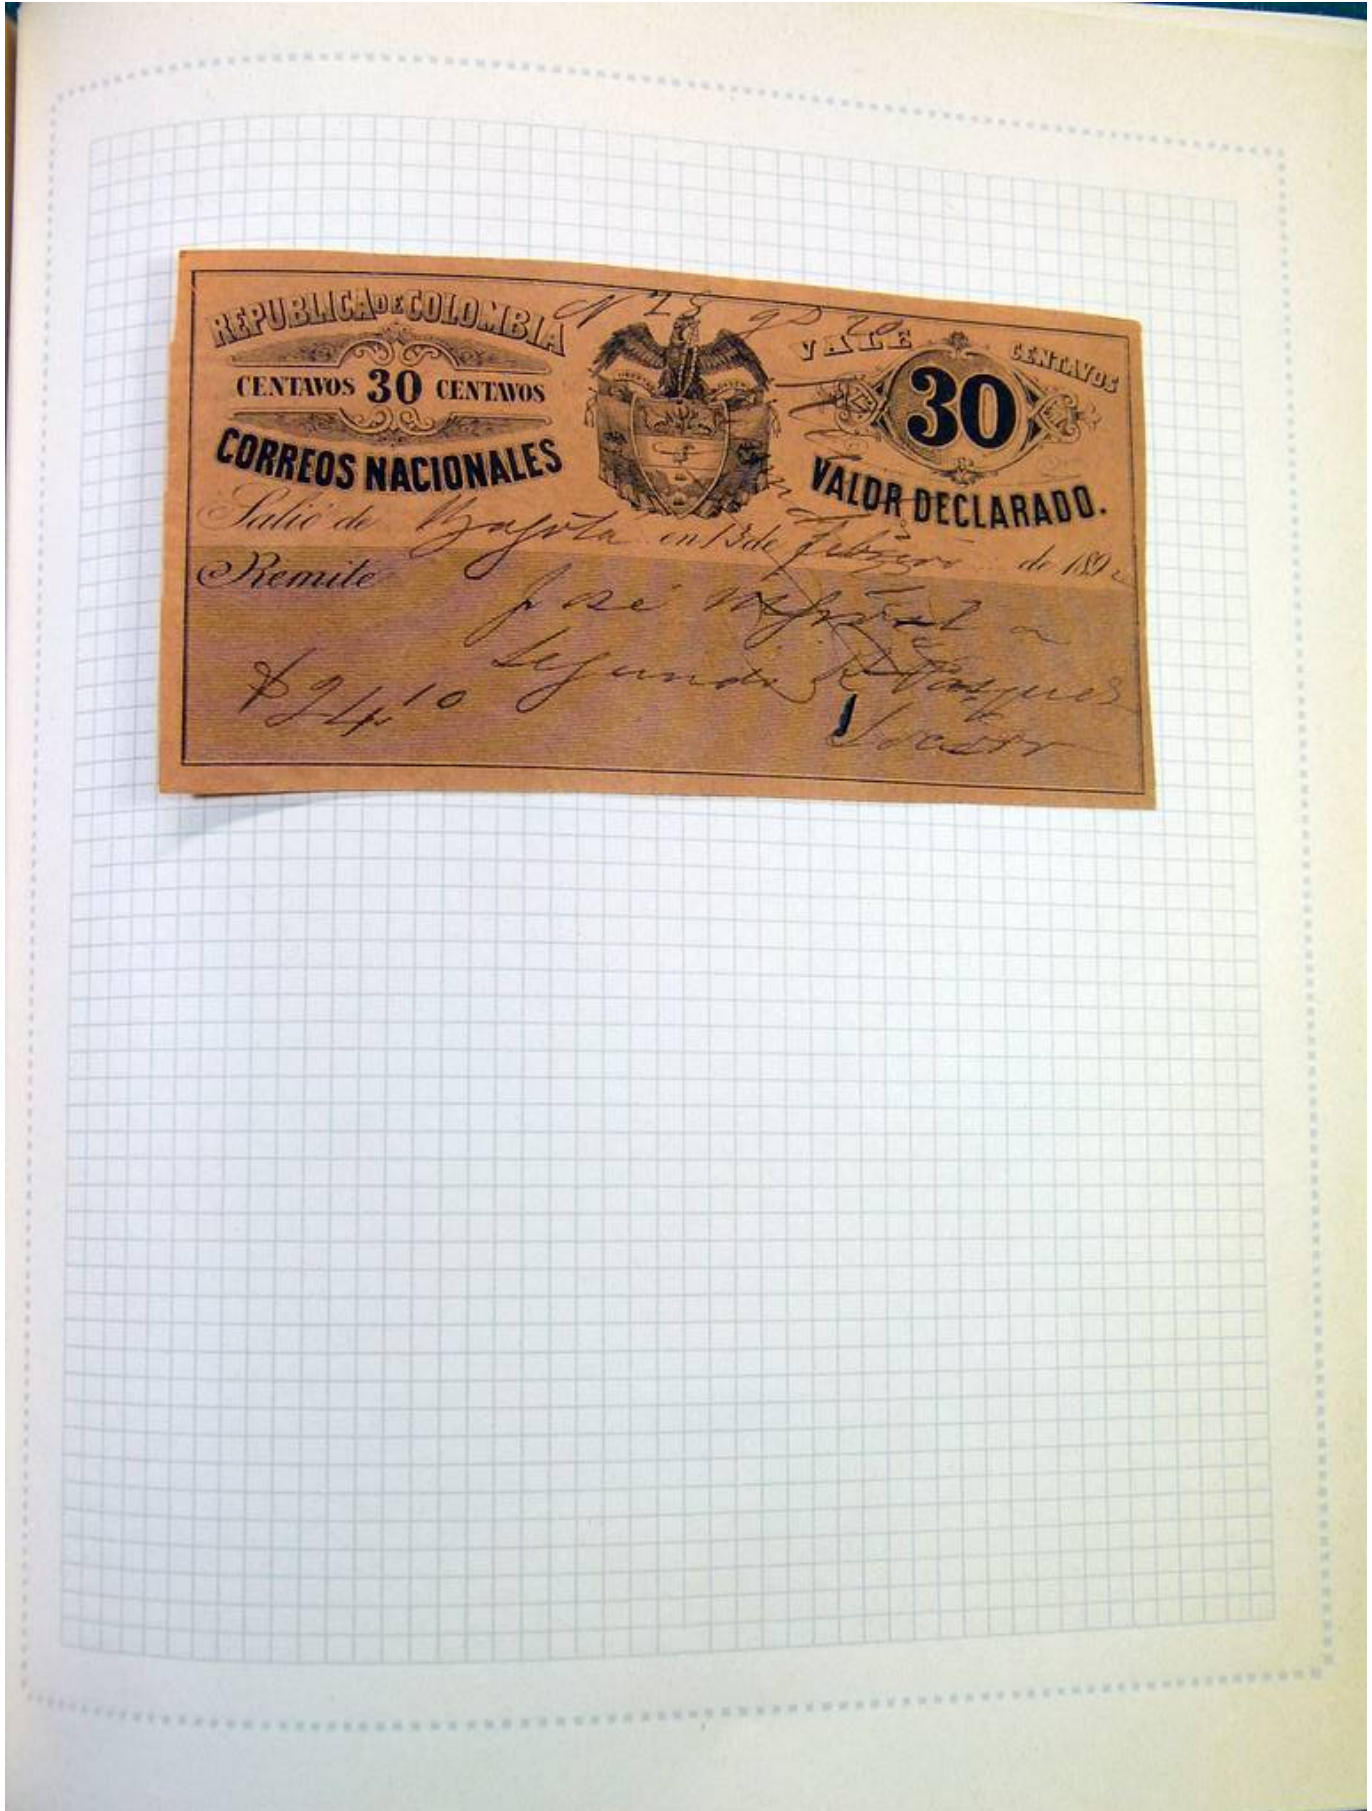 REPUBLICA DE COLOMBIA
CENTAVOS 30 CENTAVOS
CORREOS NACIONALES
N 25
VALE 30 CENTAVOS
VALOR DECLARADO.
Salió de Bogotá en 13 de Febrero de 189
Remite José
Segundo R
$ 24,10